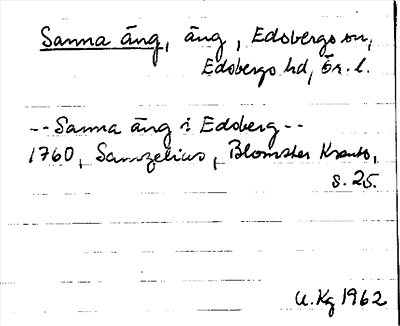 Sanna äng, äng, Edsbergs sn,
Edsbergs hd, Ör. l.
-- Sanna äng i Edsberg --
1760, Samzelius, Blomster Krants,
s. 25.
U. Kg 1962